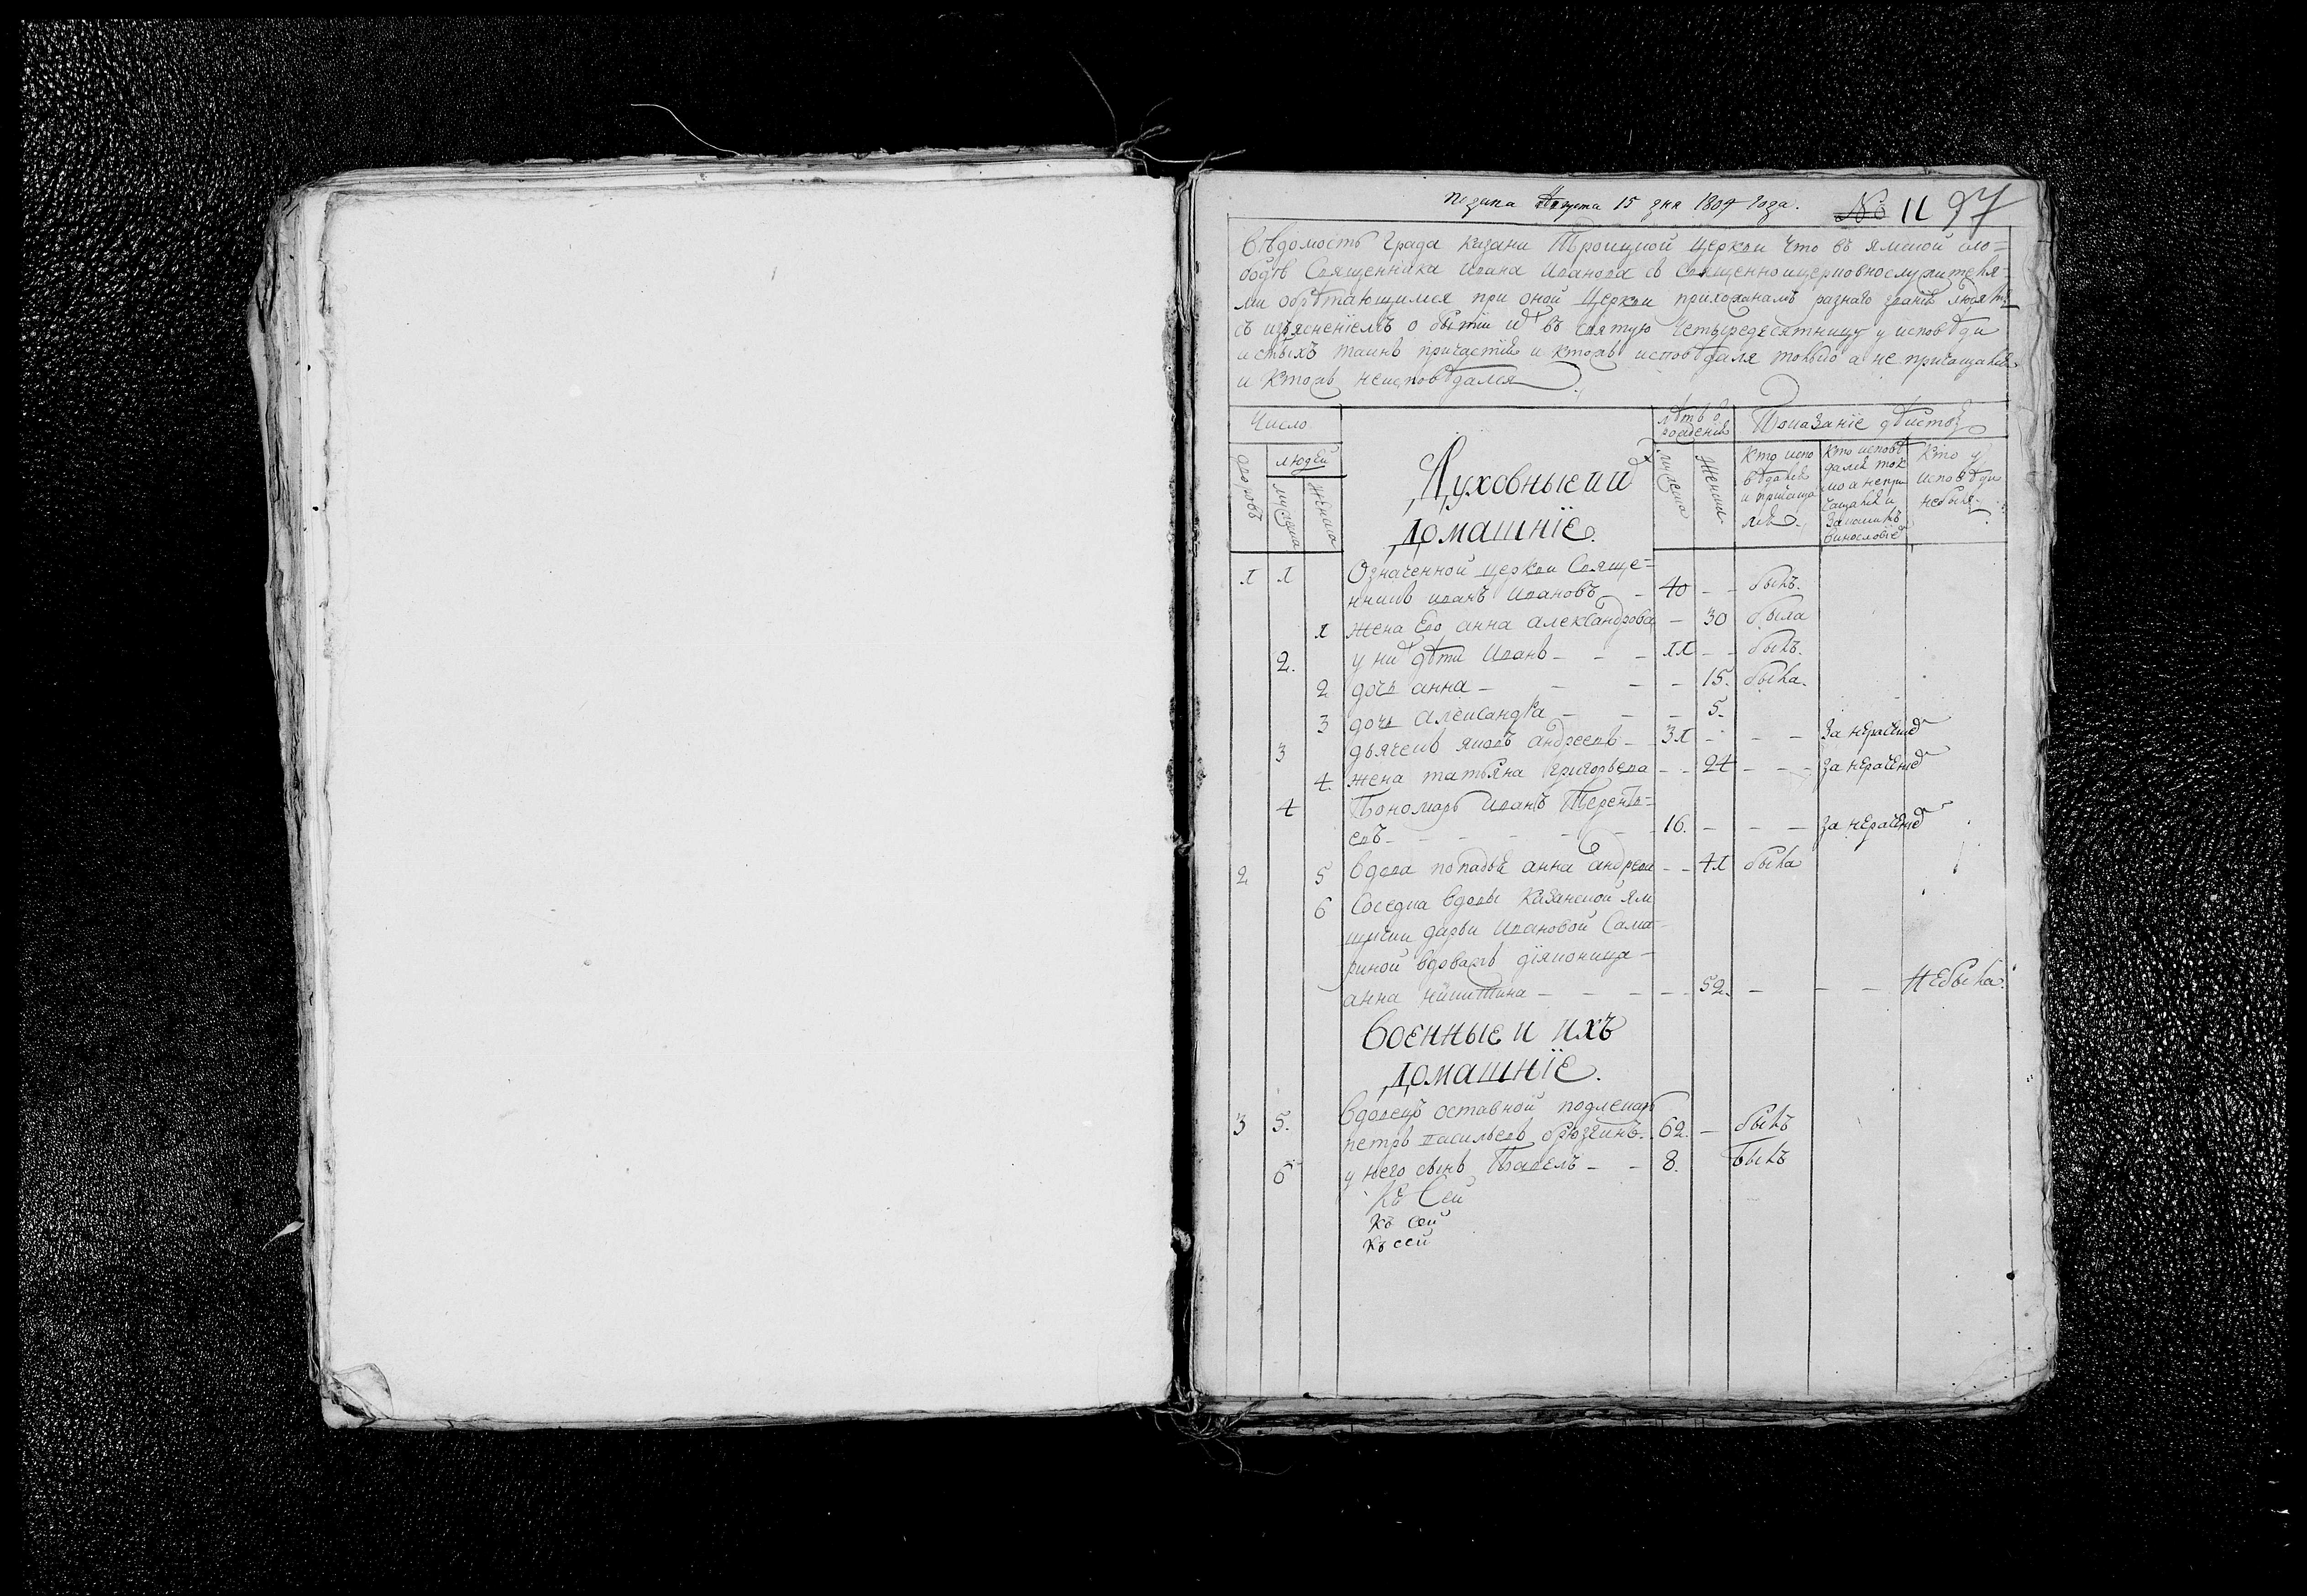 Августа 15 дня 1804 Года.
№ 11 97
Вѣдомость Града Казани Троицкой Церкви что въ Ямской сло=
бодѣ Священника Ивана Иванова съ Священноицерковнослужителя=
ми обрѣтающимся при оной Церкви прихожанамъ разнаго званія людямъ
съ изъясненіемъ о бытіи ихъ въ святую Четыредесятницу у исповѣди
и стыхъ таинъ причастія и ктожъ исповѣдался токмо а не причащался
и ктожъ неисповѣдался
Число
лѣтъ о рожденія
Показаніе дѣйства
дворовъ
людей
мужеска
женска
Духовные ихъ
домашніе.
мужеска
Женска
Кто испо
вѣдался
и причаща
лся.
Кто исповѣ
дался ток
мо а непри
чащался и
за какимъ
винословіемъ
Кто у
исповѣди
небылъ.
1 1 Означенной церкви Свяще=
нникъ иванъ Ивановъ - 40 - - былъ.
1 жена Его анна александрова - 30 была
2. у нихъ дѣти Иванъ - - - 11 - - былъ.
2 дочь анна - - - - 15. была.
3 дочь Александра - - - 5.
3 дьячекъ яковъ андреевъ - 31 - - - За нерачениемъ
4. жена татьяна Григорьева - - 24 - - - за нерачениемъ
4 Пономарь иванъ Терентъ=
евъ - - - - - 16. - - - за нерачениемъ
2 5 вдова попадья анна андреева - - 41 была
6 Соседка вдовы Казанской ям
щички дарьи Ивановой Сама=
риной вдоважъ діяконица -
анна никитина - - - - - 52. - - - небыла.
Военные и ихъ
домашніе.
3 5. Вдовецъ оставной подлекарь
петръ васильевъ брюзгинъ. 62. - былъ
6 у него сынъ Павелъ - - 8. былъ
Къ Сей
Къ сей
Къ сей